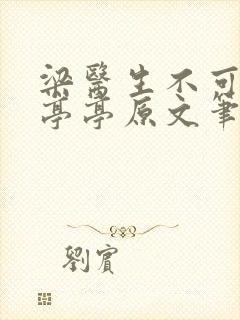 梁醫生不可
亭亭原文筆
劉賓